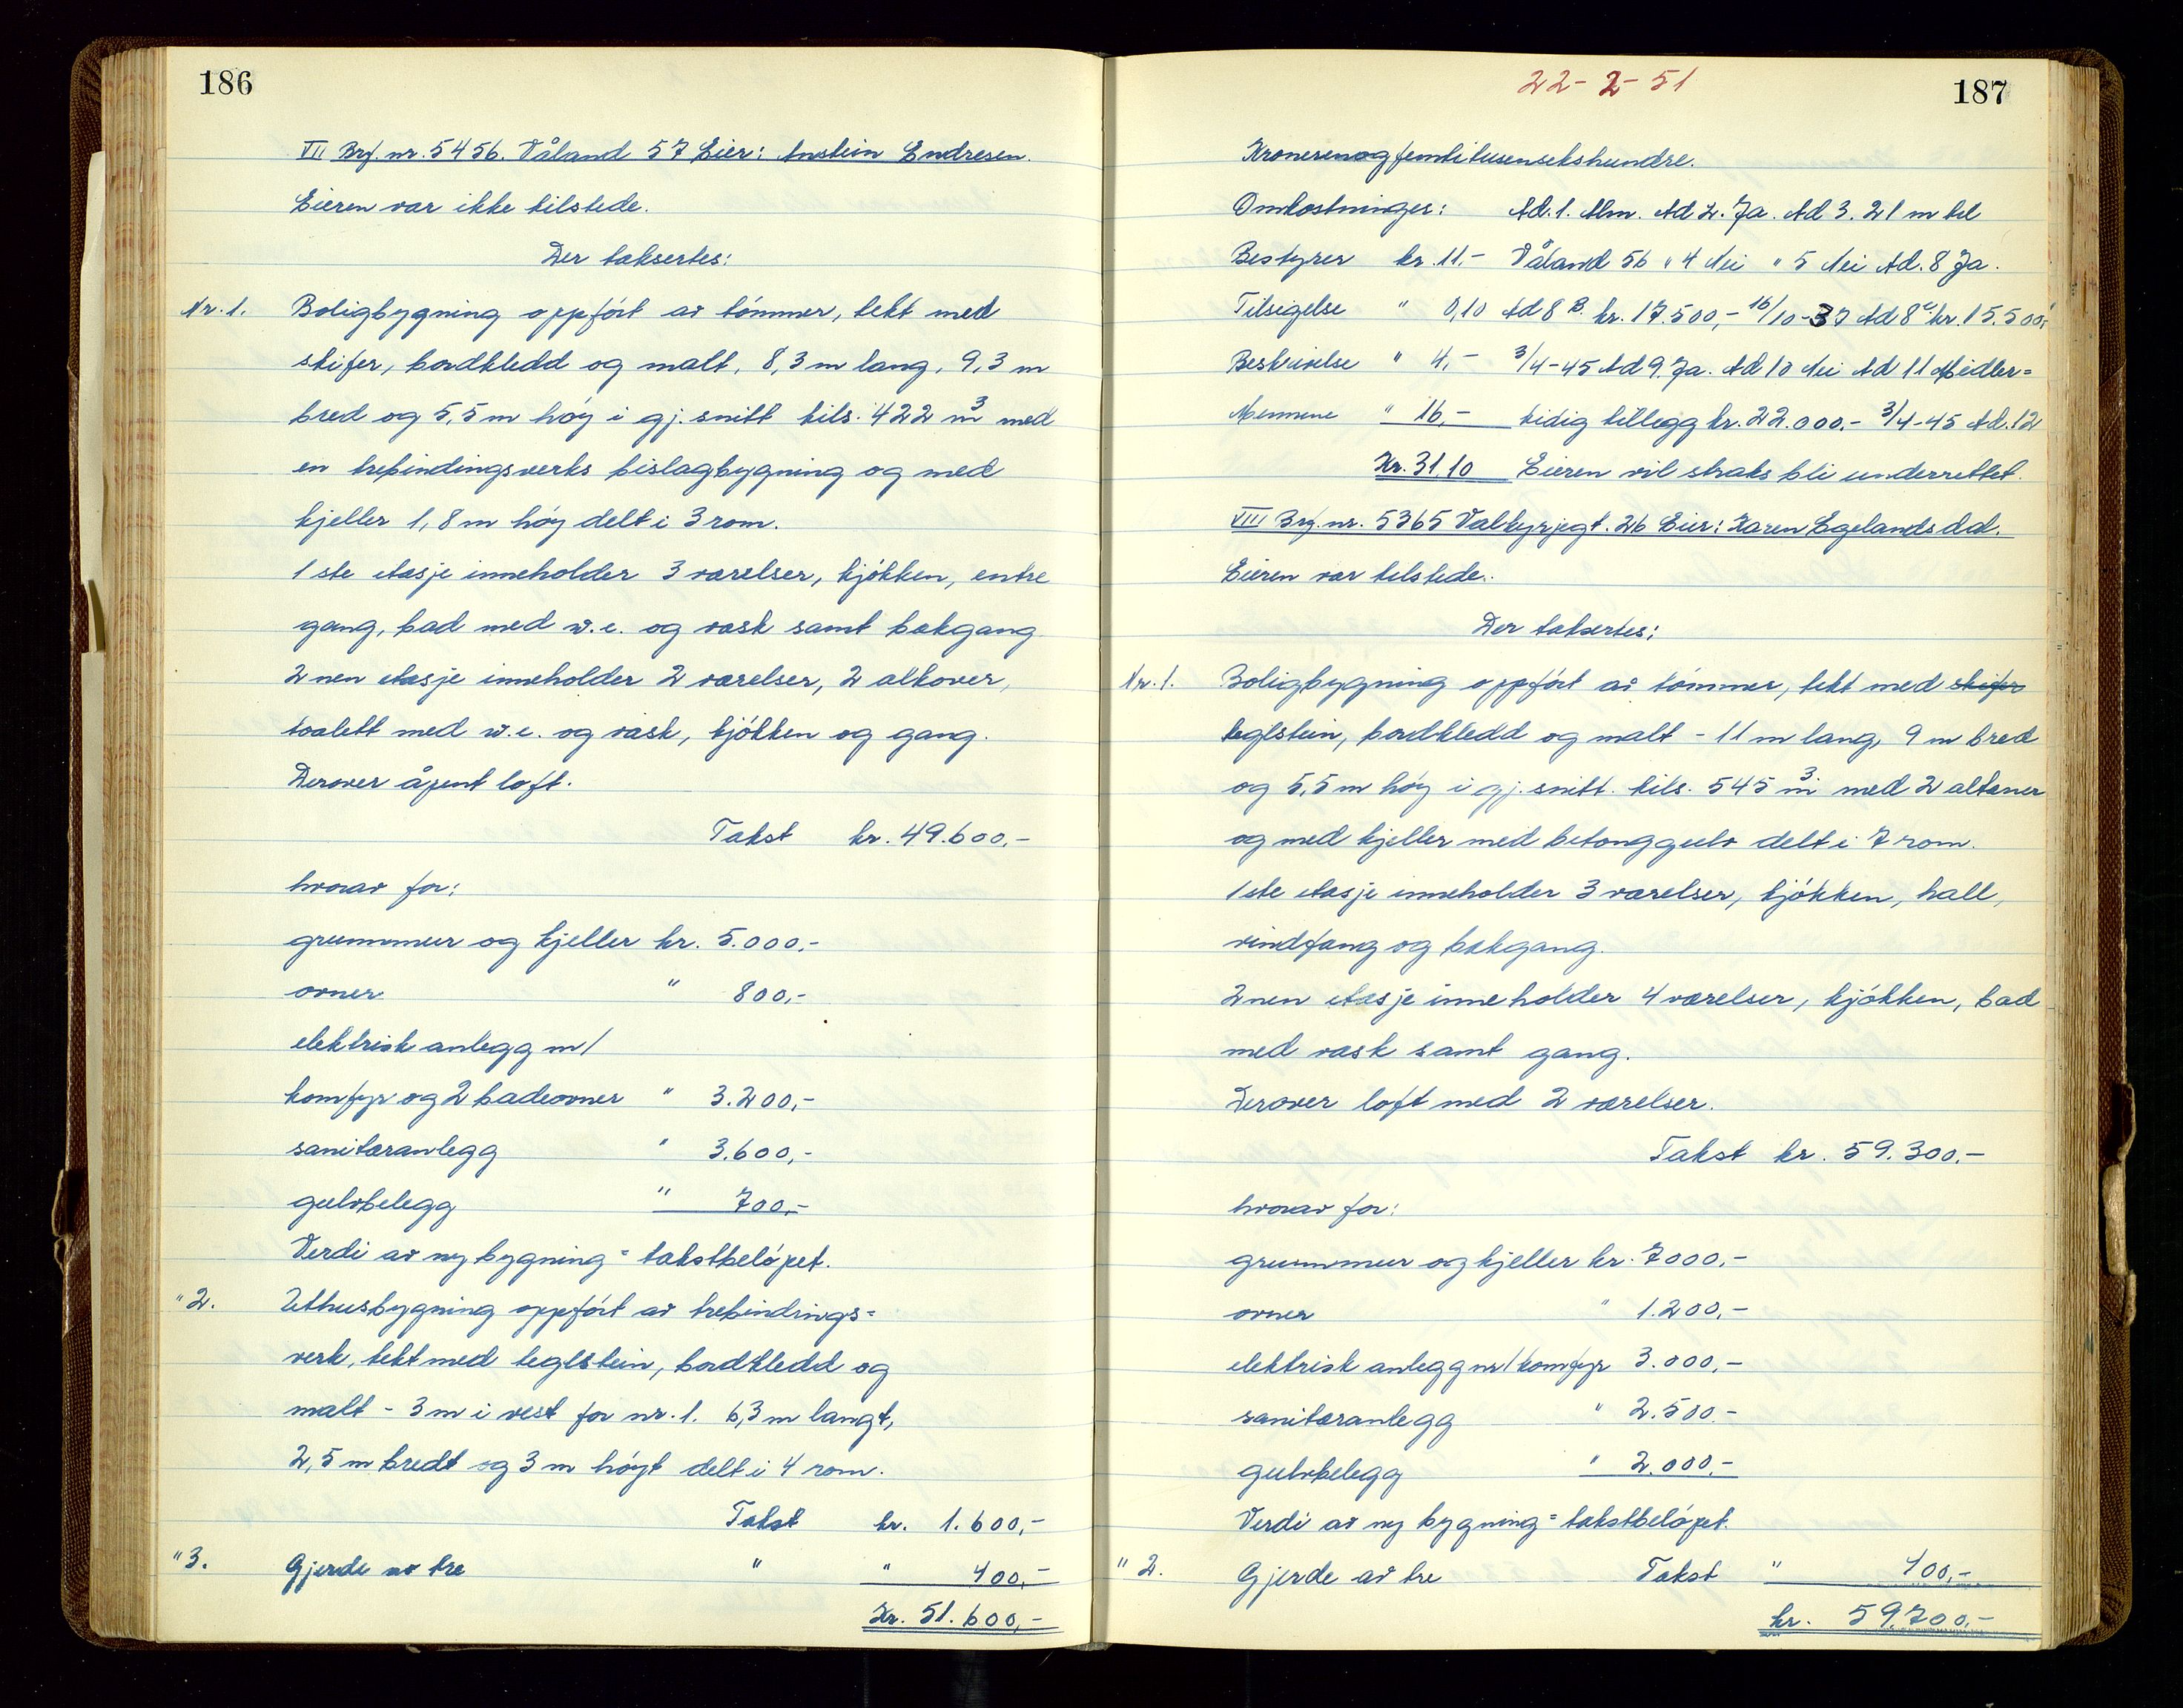 186
VII Brf. nr. 5456. Våland 57 Eier: Anstein Endresen.
Eieren var ikke tilstede.
Der taksertes:
Nr. 1. Boligbygning oppfört av tömmer, tekt med
skifer, bordkledd og malt, 8,3 m lang, 9,3 m
bred og 5,5 m höy i gj. snitt tils. 422 m³ med
en trebindingsverks bislagbygning og med
kjeller 1,8 m höy delt i 3 rom.
1ste etasje inneholder 3 værelser, kjökken, entre
gang, bad med w.c. og vask samt bakgang
2nen etasje inneholder 2 værelser, 2 alkover,
toalett med w.c. og vask, kjökken og gang.
Derover åpent loft.
Takst kr. 49.600,-
hvorav for:
grunnmur og kjeller kr. 5.000,-
ovner " 800,-
elektrisk anlegg m/
komfyr og 2 badeovner " 3.200,-
sanitæranlegg " 3.600,-
gulvbelegg " 700,-
Verdi av ny bygning = takstbelöpet.
" 2. Uthusbygning oppfört av trebindings=
verk, tekt med teglstein, bordkledd og
malt - 3 m i vest for nr. 1. 6,3 m langt,
2,5 m bredt og 3 m höyt delt i 4 rom.
Takst kr. 1.600,-
" 3. Gjerde av tre " " 400,-
Kr. 51.600,-
22-2-51
187
Kronerenogfemtitusensekshundre.
Omkostninger: Ad. 1. Alm. Ad 2. Ja. Ad 3. 21 m tel
Bestyrer kr. 11.- Våland 56 " 4 Nei " 5 Nei Ad. 8 Ja.
Tilsigelse " 0,10 Ad 8 B. kr. 17.500,- 16/10-37 Ad 8c kr. 15.500,-
Beskrivelse " 4,- 3/4-45 Ad 9. Ja. Ad 10 Nei Ad 11 Midler=
Mennene " 16,- tidig tillegg kr. 22.000.- 3/4-45 Ad. 12
Kr. 31,10 Eieren vil straks bli underrettet.
VIII Brf. nr. 5365 Valkyrjegt. 26 Eier: Karen Egelandsdal.
Eieren var tilstede.
Der taksertes:
Nr. 1. Boligbygning oppfört av tömmer, tekt med skifer
teglstein, bordkledd og malt - 11 m lang, 9 m bred
og 5,5 m höy i gj. snitt. tils. 545 m³ med 2 altaner
og med kjeller med betonggulv delt i 7 rom.
1ste etasje inneholder 3 værelser, kjökken, hall,
vindfang og bakgang.
2nen etasje inneholder 4 værelser, kjökken, bad
med vask samt gang.
Derover loft med 2 værelser.
Takst kr. 59.300,-
hvorav for:
grunnmur og kjeller kr. 7000,-
ovner " 1.200,-
elektrisk anlegg m/komfyr 3.000,-
sanitæranlegg " 2.500.-
gulvbelegg " 2.000,-
Verdi av ny bygning = takstbelöpet.
" 2. Gjerde av tre Takst " 400,-
kr. 59.700,-